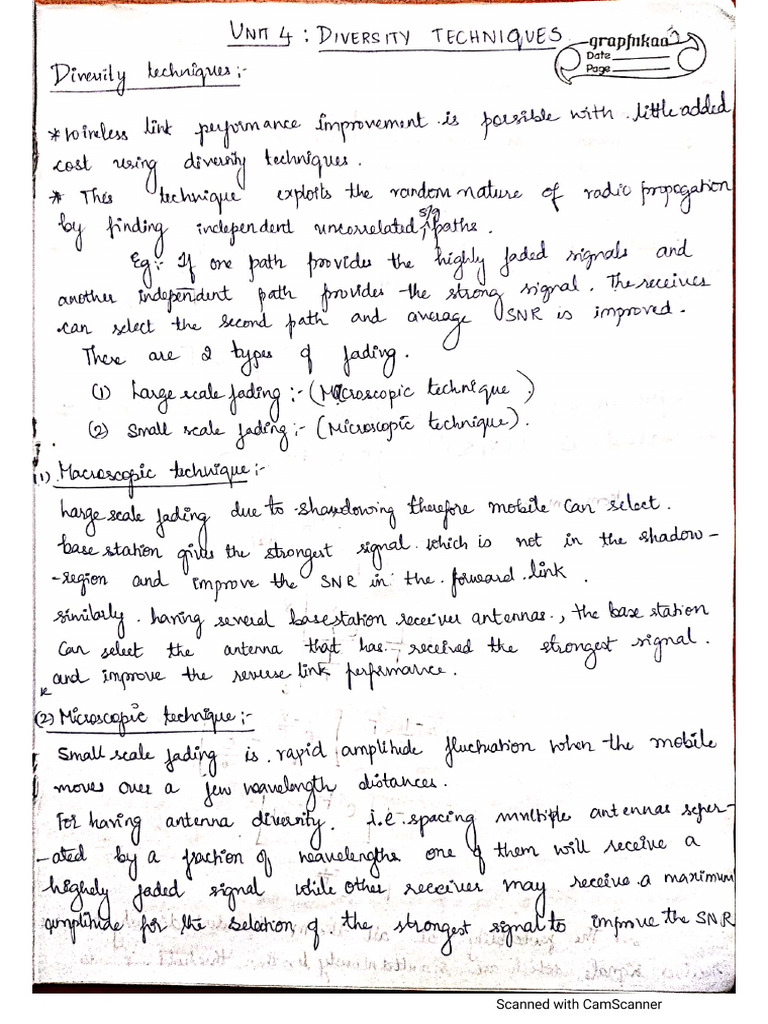 UNIT 4 : DIVERSITY TECHNIQUES
graphikaa
Date
Page
Diversity techniques:-
* Wireless link performance improvement is possible with little added
cost using diversity techniques.
* This technique exploits the random nature of radio propogation
by finding independent uncorrelated sig paths.
Eg:- If one path provides the highly faded signals and
another independent path provides the strong signal. The receiver
can select the second path and average SNR is improved.
There are 2 types of fading.
(1) Large scale fading:- (Macroscopic technique)
(2) Small scale fading:- (Microscopic technique).
(1) Macroscopic technique:-
Large scale fading due to shawdowing therefore mobile can select.
base station gives the strongest signal which is not in the shadow-
-region and improve the SNR in the forward link.
similarly. having several basestation receiver antennas., the base station
can select the antenna that has received the strongest signal.
and improve the reverse link performance.
(2) Microscopic technique:-
Small scale fading is rapid amplitude fluctuation when the mobile
moves over a few wavelength distances.
For having antenna diversity. i.e. spacing multiple antennas seper-
-ated by a fraction of wavelengths one of them will receive a
highely faded signal while other receiver may receive a maximum
amplitude for the selection of the strongest signal to improve the SNR
Scanned with CamScanner